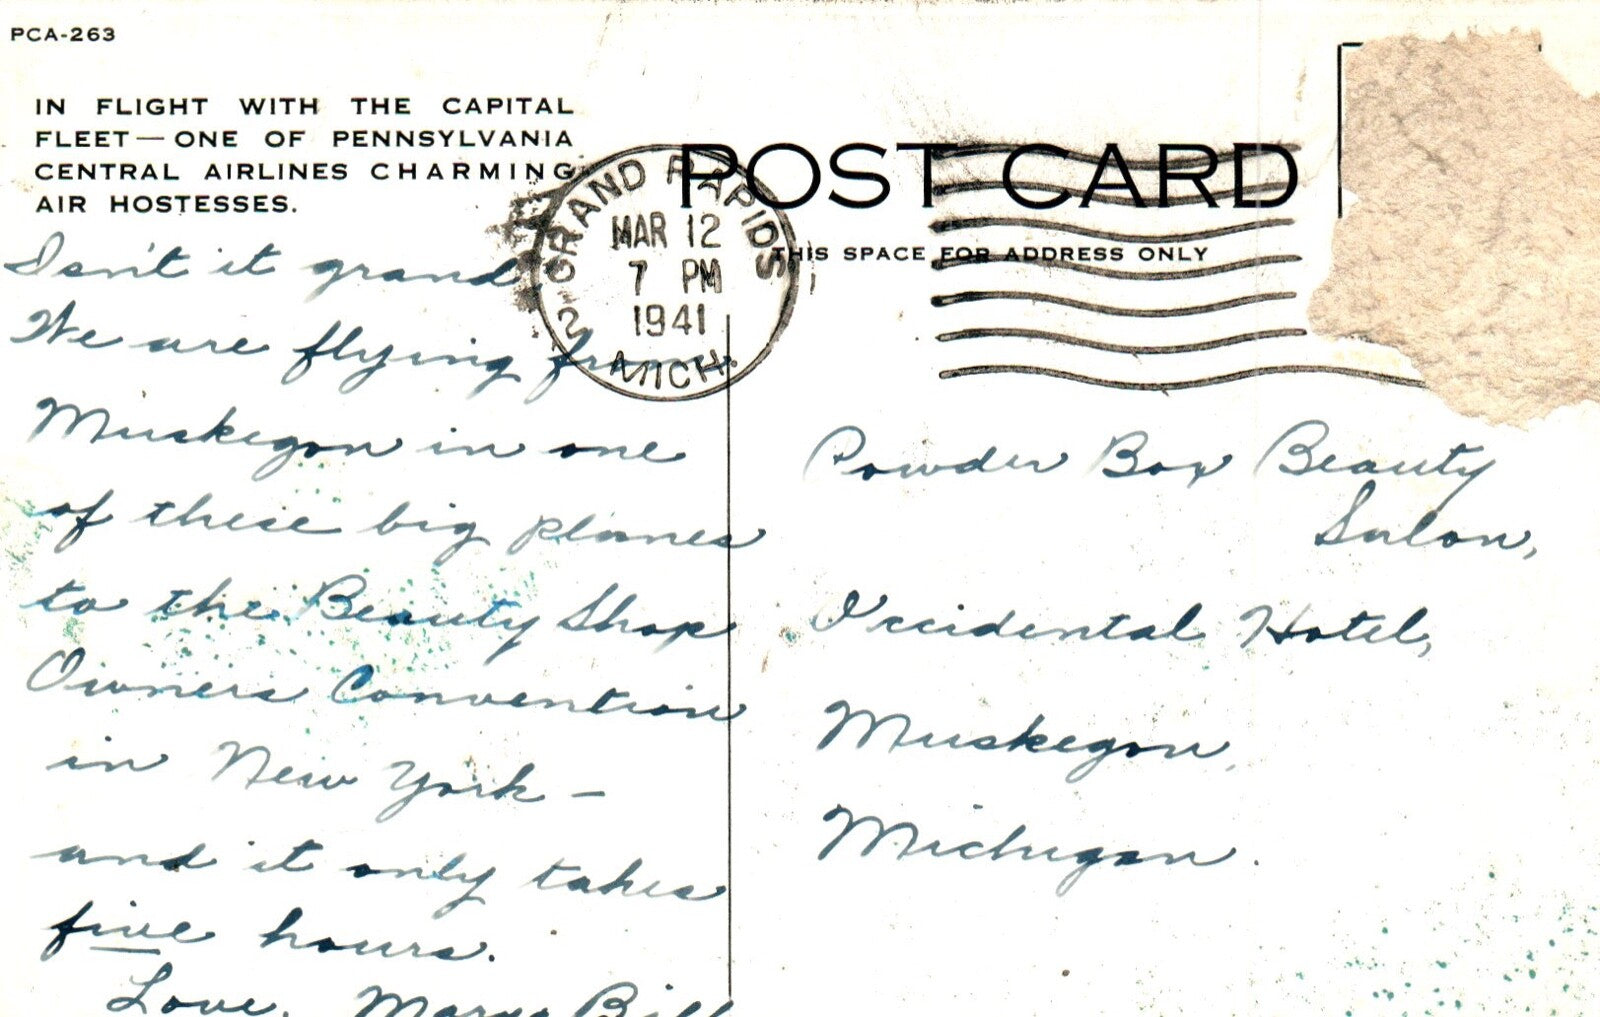 PCA-263
IN FLIGHT WITH THE CAPITAL
FLEET—ONE OF PENNSYLVANIA
CENTRAL AIRLINES CHARMING
AIR HOSTESSES.
Isn't it grand.
We are flying from
Muskegon in one
of these big planes
to the Beauty Shop
Owners Convention
in New York –
and it only takes
five hours.
Love, Mary Bill
GRAND RAPIDS 2
MAR 12
7 PM
1941
MICH.
POST CARD
THIS SPACE FOR ADDRESS ONLY
Powder Box Beauty
Salon,
Occidental Hotel,
Muskegon,
Michigan.